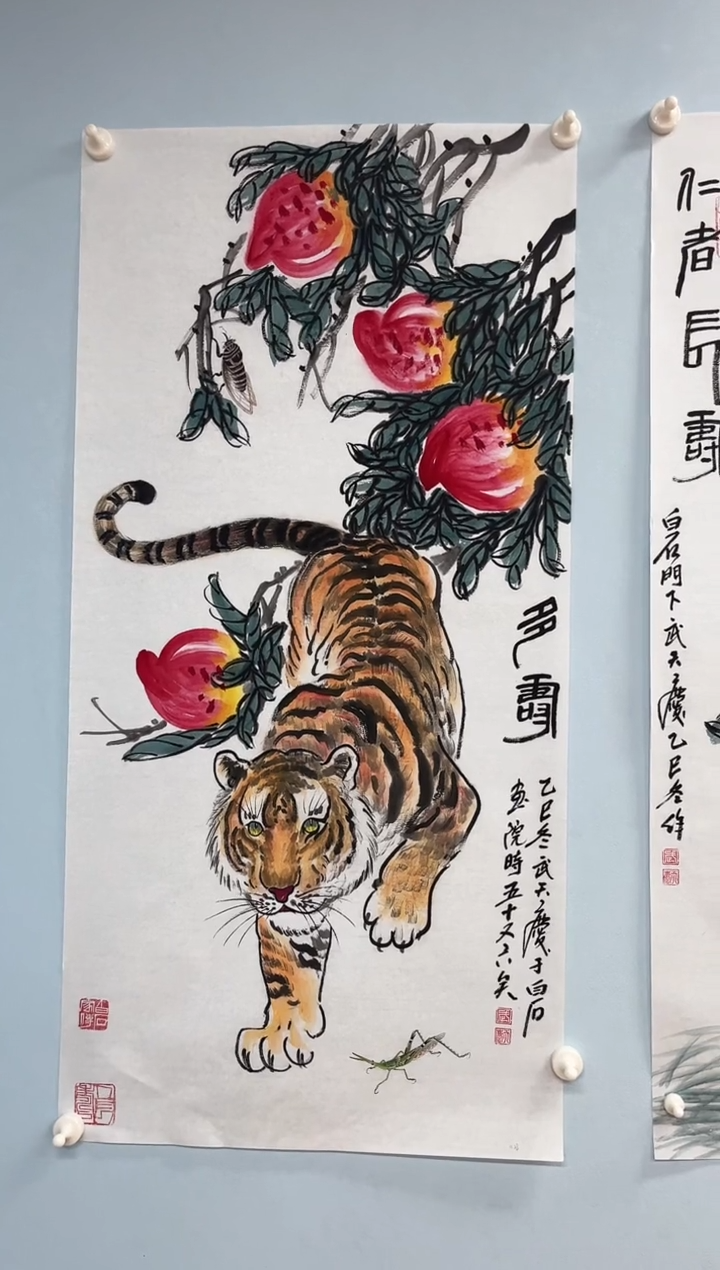 多壽
乙巳冬武天慶于白石
画院時五十又六矣
仁者
壽
白石門下武天慶乙巳冬作